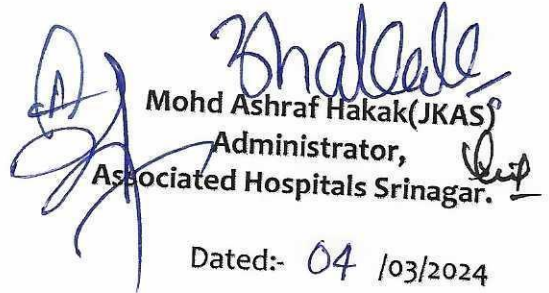 Mohd Ashraf Hakak(JKAS)
Administrator,
Associated Hospitals Srinagar.
Dated:- 04 /03/2024